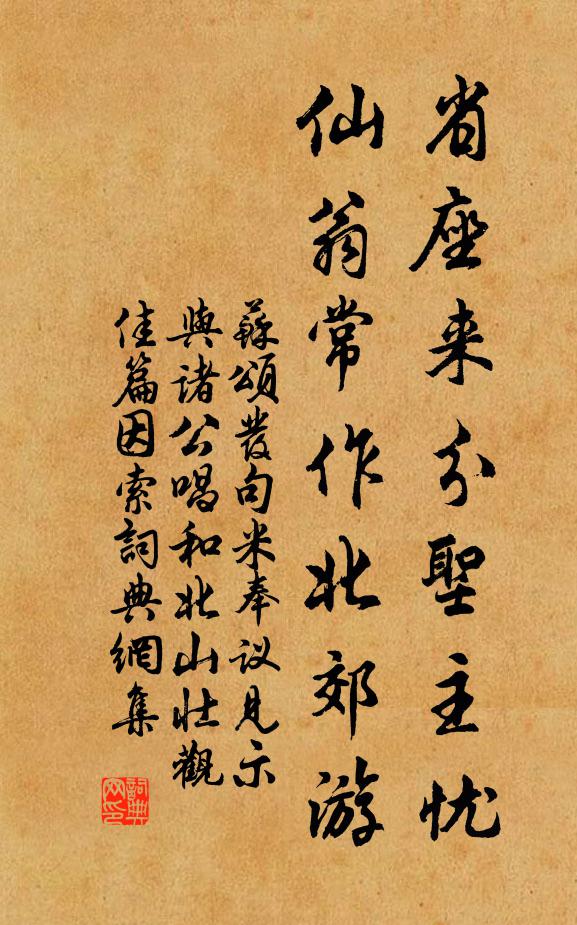 省座来分聖主忧
仙翁常作北郊游
蘇頌發句米奉议見示
與诸公唱和北山壮觀
佳篇因索詞典網集
詞典网印